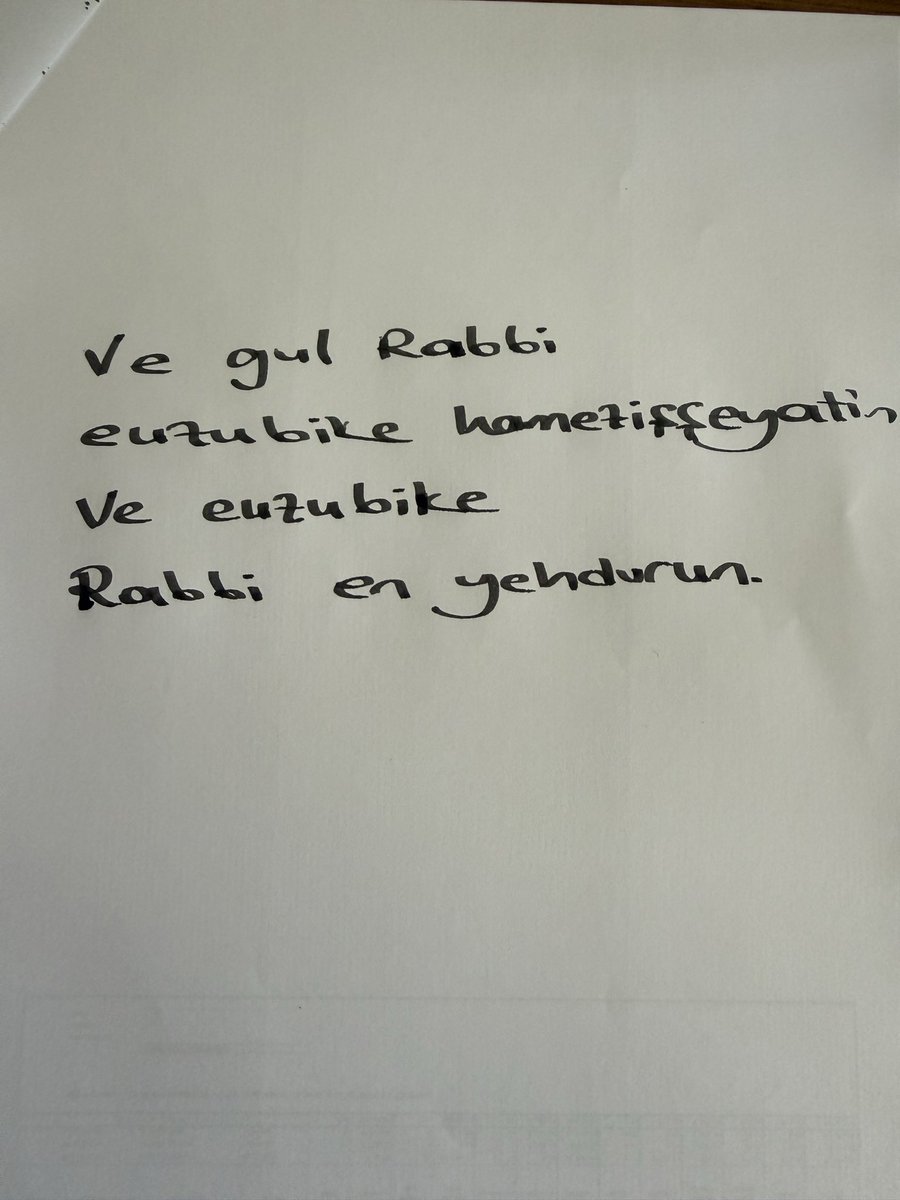 Ve gul Rabbi
euzubike hamezişşeyatin
Ve euzubike
Rabbi en yehdurun.